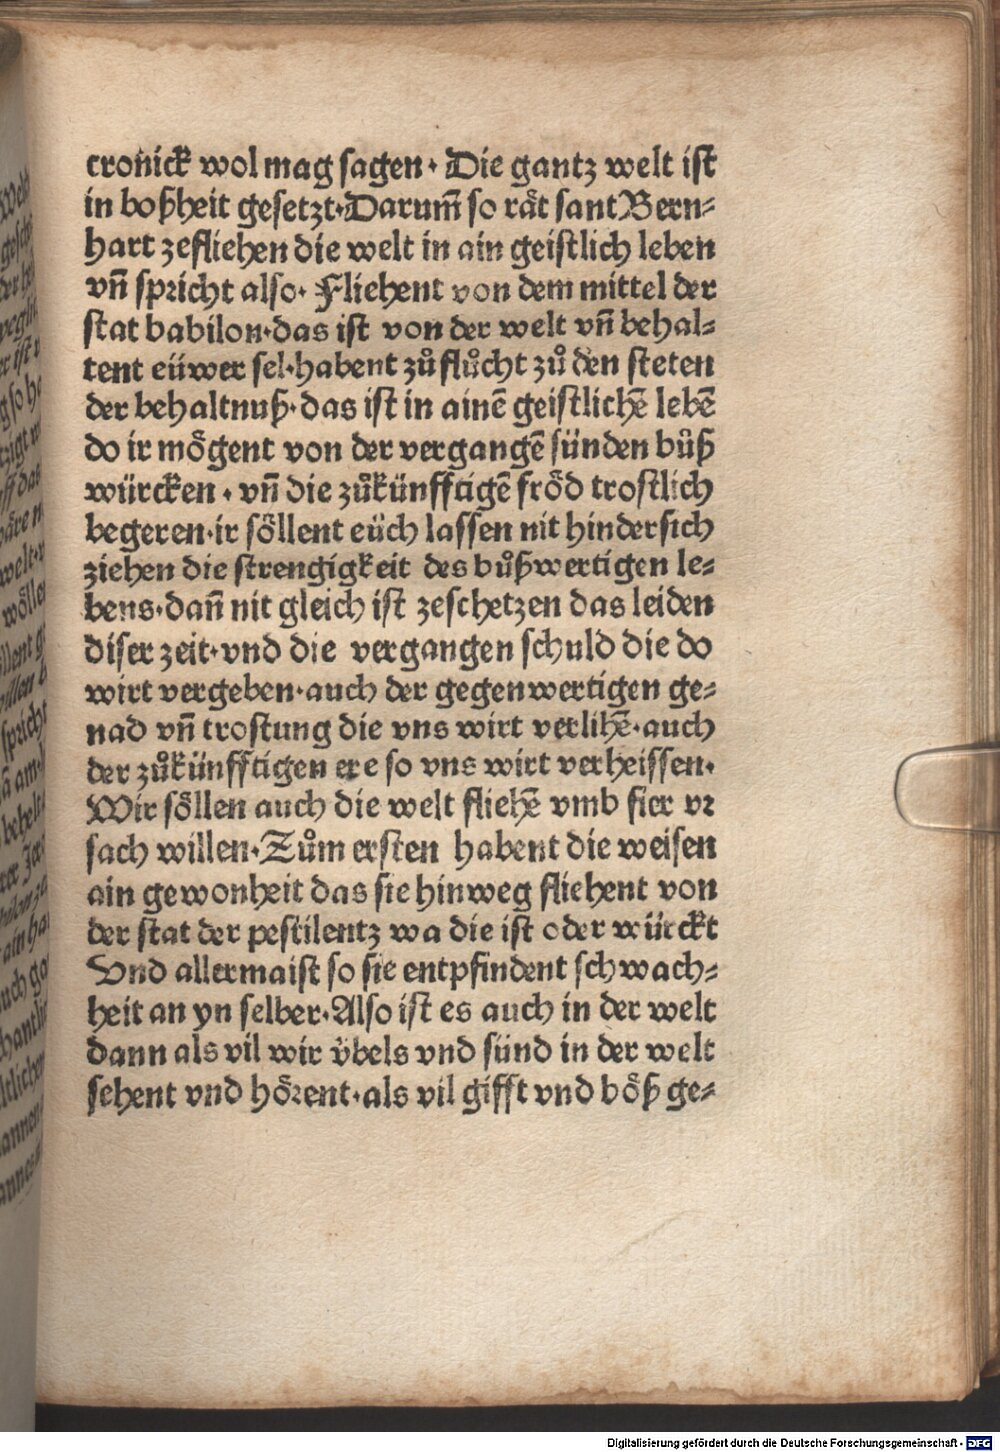 cron̄ick wol mag sagen · Die gantz welt ist
in boßheit gesetzt · Darum̄ so rǎt sant Bern⸗
hart zefliehen die welt in ain geistlich leben
vn̄ spricht also · Fliehent von dem mittel der
stat babilon · das ist von der welt vn̄ behal⸗
tent eüwer sel · habent zů flůcht zů den steten
der behaltnuß · das ist in ainē geistlichē lebē
do ir mo᷑gent von der vergangē sünden bůß
würcken · vn̄ die zůkünfftigē frőd trostlich
begeren · ir söllent eüch lassen nit hindersich
ziehen die strengigkeit des bůßwertigen le⸗
bens · dan̄ nit gleich ist zeschetzen das leiden
diser zeit · vnd die vergangen schuld die do
wirt vergeben · auch der gegenwertigen ge⸗
nad vn̄ trostung die vns wirt verlihē · auch
der zůkünfftigen ere so vns wirt verheissen ·
Wir söllen auch die welt fliehē vmb fier vr
sach willen · Zům ersten habent die weisen
ain gewonheit das sie hinweg fliehent von
der stat der pestilentz wa die ist oder würckt
Vnd allermaist so sie entpfindent schwach⸗
heit an yn selber · Also ist es auch in der welt
dann als vil wir v̈bels vnd sünd in der welt
sehent vnd hörent · als vil gifft vnd böß ge⸗
Digitalisierung gefördert durch die Deutsche Forschungsgemeinschaft - DFG